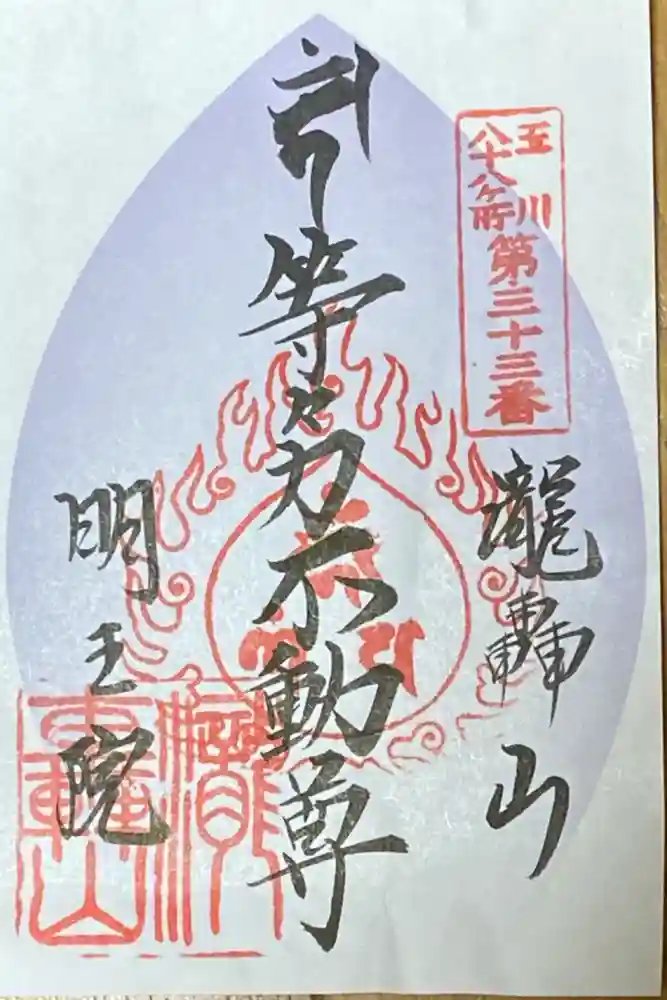 玉川
八十八ヶ所
第三十三番
瀧轟山
等々力不動尊
明王院
瀧
轟山